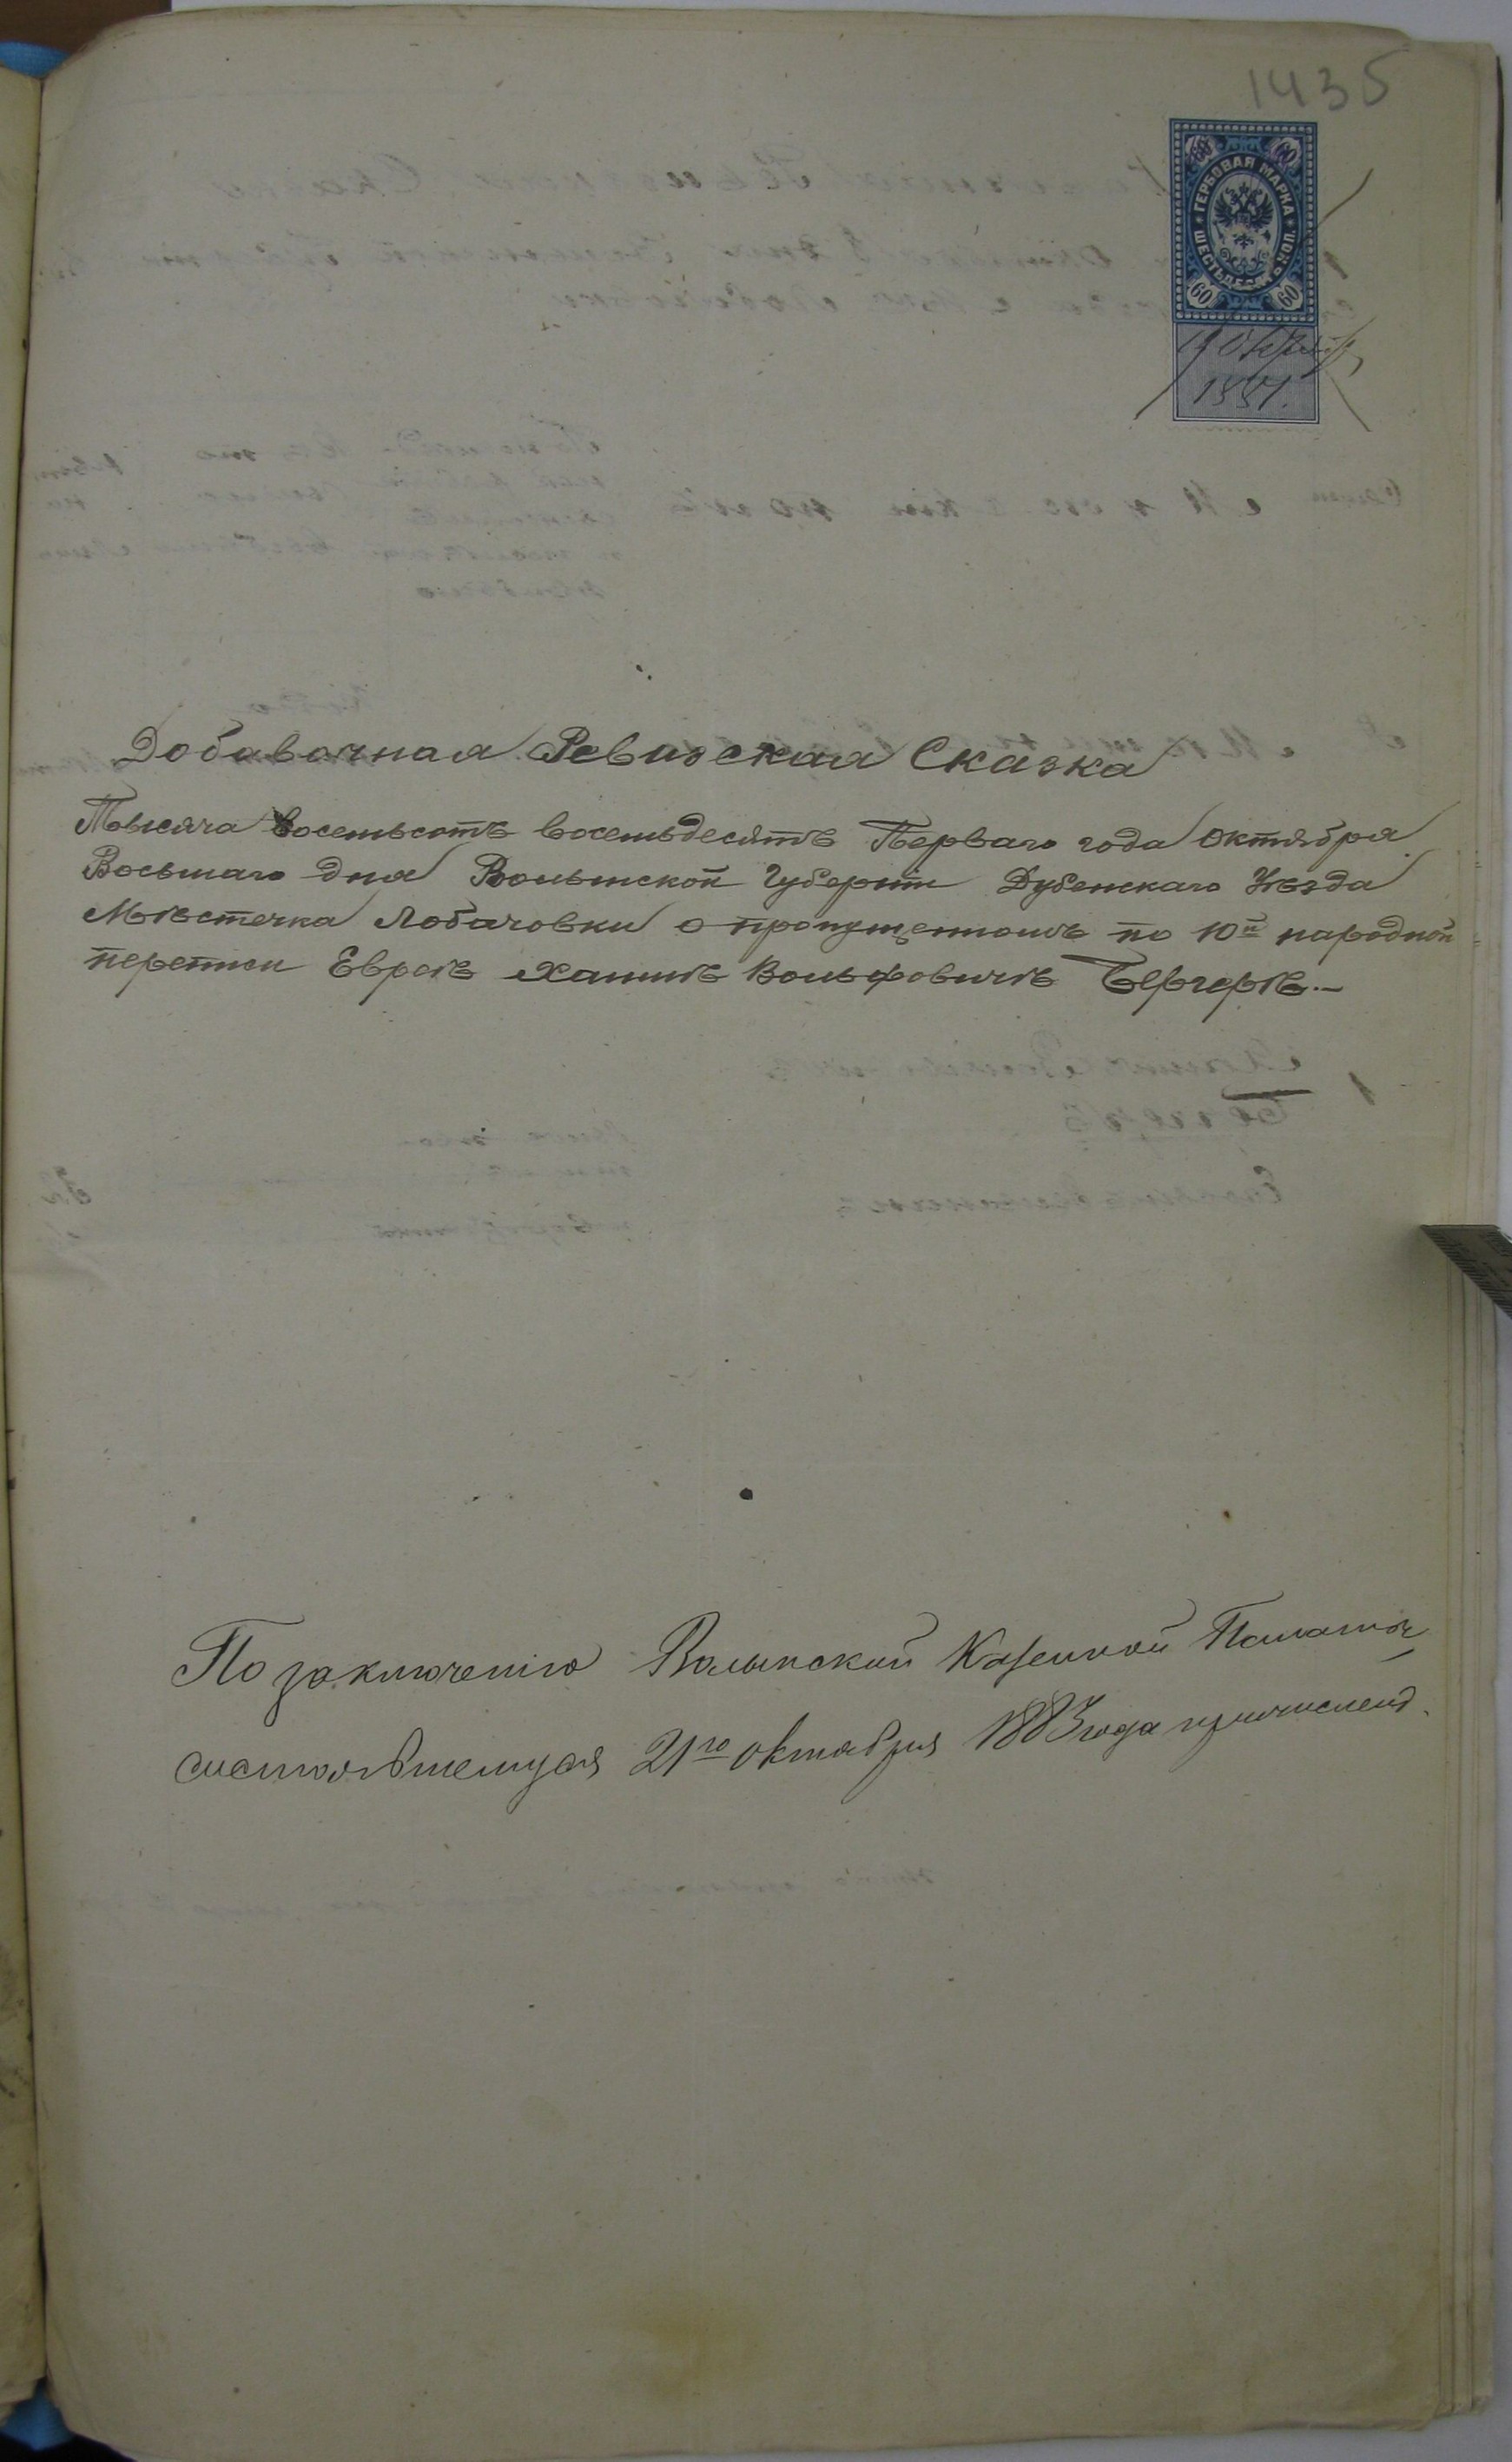 1435
60 60
ГЕРБОВАЯ МАРКА
ШЕСТЬДЕСЯТЪ КОП.
60 60
1881.
Добавочная Ревизская Сказка
Тысяча восемьсотъ восемьдесятъ Перваго года Октября
Восьмаго дня Волынской Губерніи Дубенскаго Уѣзда
Мѣстечка Лобачовки о пропущенномъ по 10й народной
переписи Евреѣ Хаимѣ Вольфовичѣ Бергерѣ.—
По заключенію Волынской Казенной Палаты
состоявшемуся 21го октября 1883 года причисленъ.